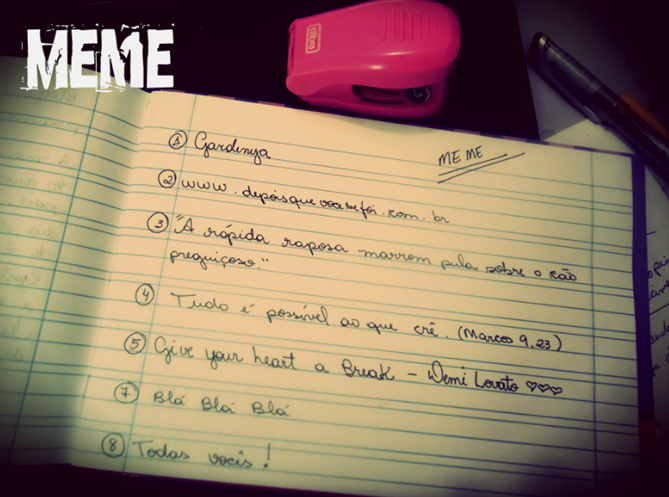 MEME
tilibra
MEME
① Gardenya
② www.depoisquevocesefoi.com.br
③ "A rápida raposa marrom pula sobre o cão
preguiçoso."
④ Tudo é possível ao que crê. (Marcos 9.23)
⑤ Give your heart a Break - Demi Lovato ♡♡♡
⑦ Blá Blá Blá
⑧ Todas vocês!